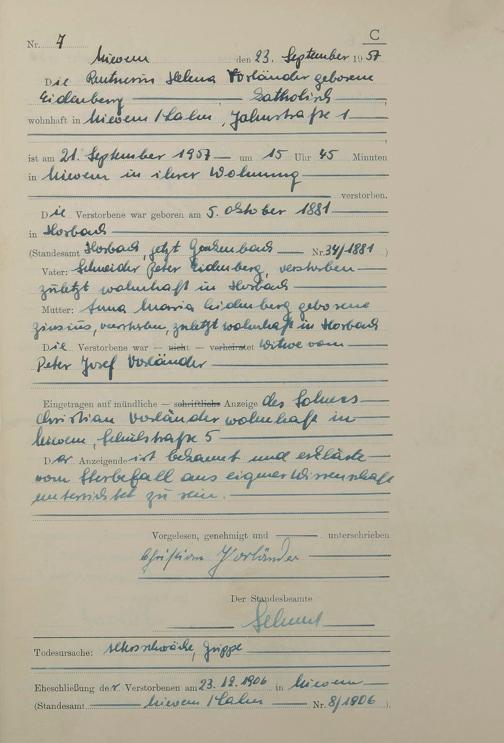 C
Nr. 7
Miesem den 23. September 1957
Die Rentnerin Helena Vorländer geborene
Eidenberg katholisch
wohnhaft in /Lahn, Jahnstraße 1
ist am 21. September 1957 um 15 Uhr 45 Minuten
in in ihrer Wohnung
verstorben.
Die Verstorbene war geboren am 5. Oktober 1881
in Horbach
(Standesamt Horbach, jetzt Nr. 34/1881)
Vater: Schneider Peter Eidenberg, verstorben
zuletzt wohnhaft in Horbach
Mutter: Anna Maria Eidenberg geborene
verstorben, zuletzt wohnhaft in Horbach
Die Verstorbene war — nicht — verheiratet Witwe vom
Peter Josef Vorländer
Eingetragen auf mündliche — schriftliche Anzeige des Sohnes
Christian Vorländer wohnhaft in
Schulstraße 5
Der Anzeigende ist bekannt und erklärte
vom Sterbefall aus eigner Wissenschaft
unterrichtet zu sein.
Vorgelesen, genehmigt und unterschrieben
Christian Vorländer
Der Standesbeamte
Todesursache: Altersschwäche, Grippe
Eheschließung der Verstorbenen am 23.12.1906 in
(Standesamt /Lahn Nr. 8/1906).